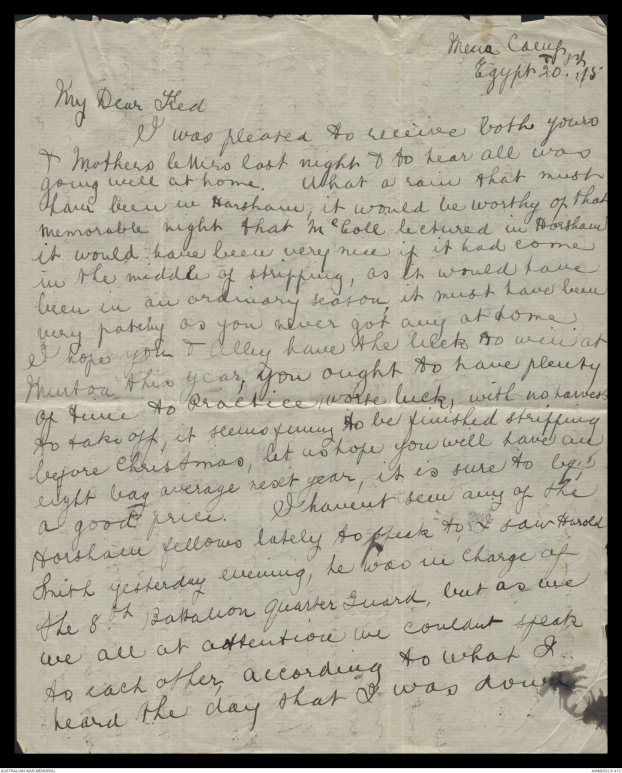 Mena Camp
Egypt 20. 1st /15
My Dear Ted
I was pleased to receive both yours
& Mothers letters last night & to hear all was
going well at home. What a rain that must
have been in Horsham, it would be worthy of that
memorable night that McColl lectured in Horsham
it would have been very nice if it had come
in the middle of stripping, as it would have
been in an ordinary season, it must have been
very patchy as you never got any at home
I hope you & Alley have the luck to win at
Murtoa this year, you ought to have plenty
of time to Practice worse luck, with no harvest
to take off, it seems funny to be finished stripping
before Christmas, let us hope you will have an
eight bag average next year, it is sure to be
a good price. I havent seen any of the
Horsham fellows lately to speak to I saw Harold
Smith yesterday evening, he was in charge of
the 8th Battalion Quarter Guard, but as we
we all at attention we couldnt speak
to each other, according to what I
heard the day that I was down
AUSTRALIAN WAR MEMORIAL
AWM2022.6.413